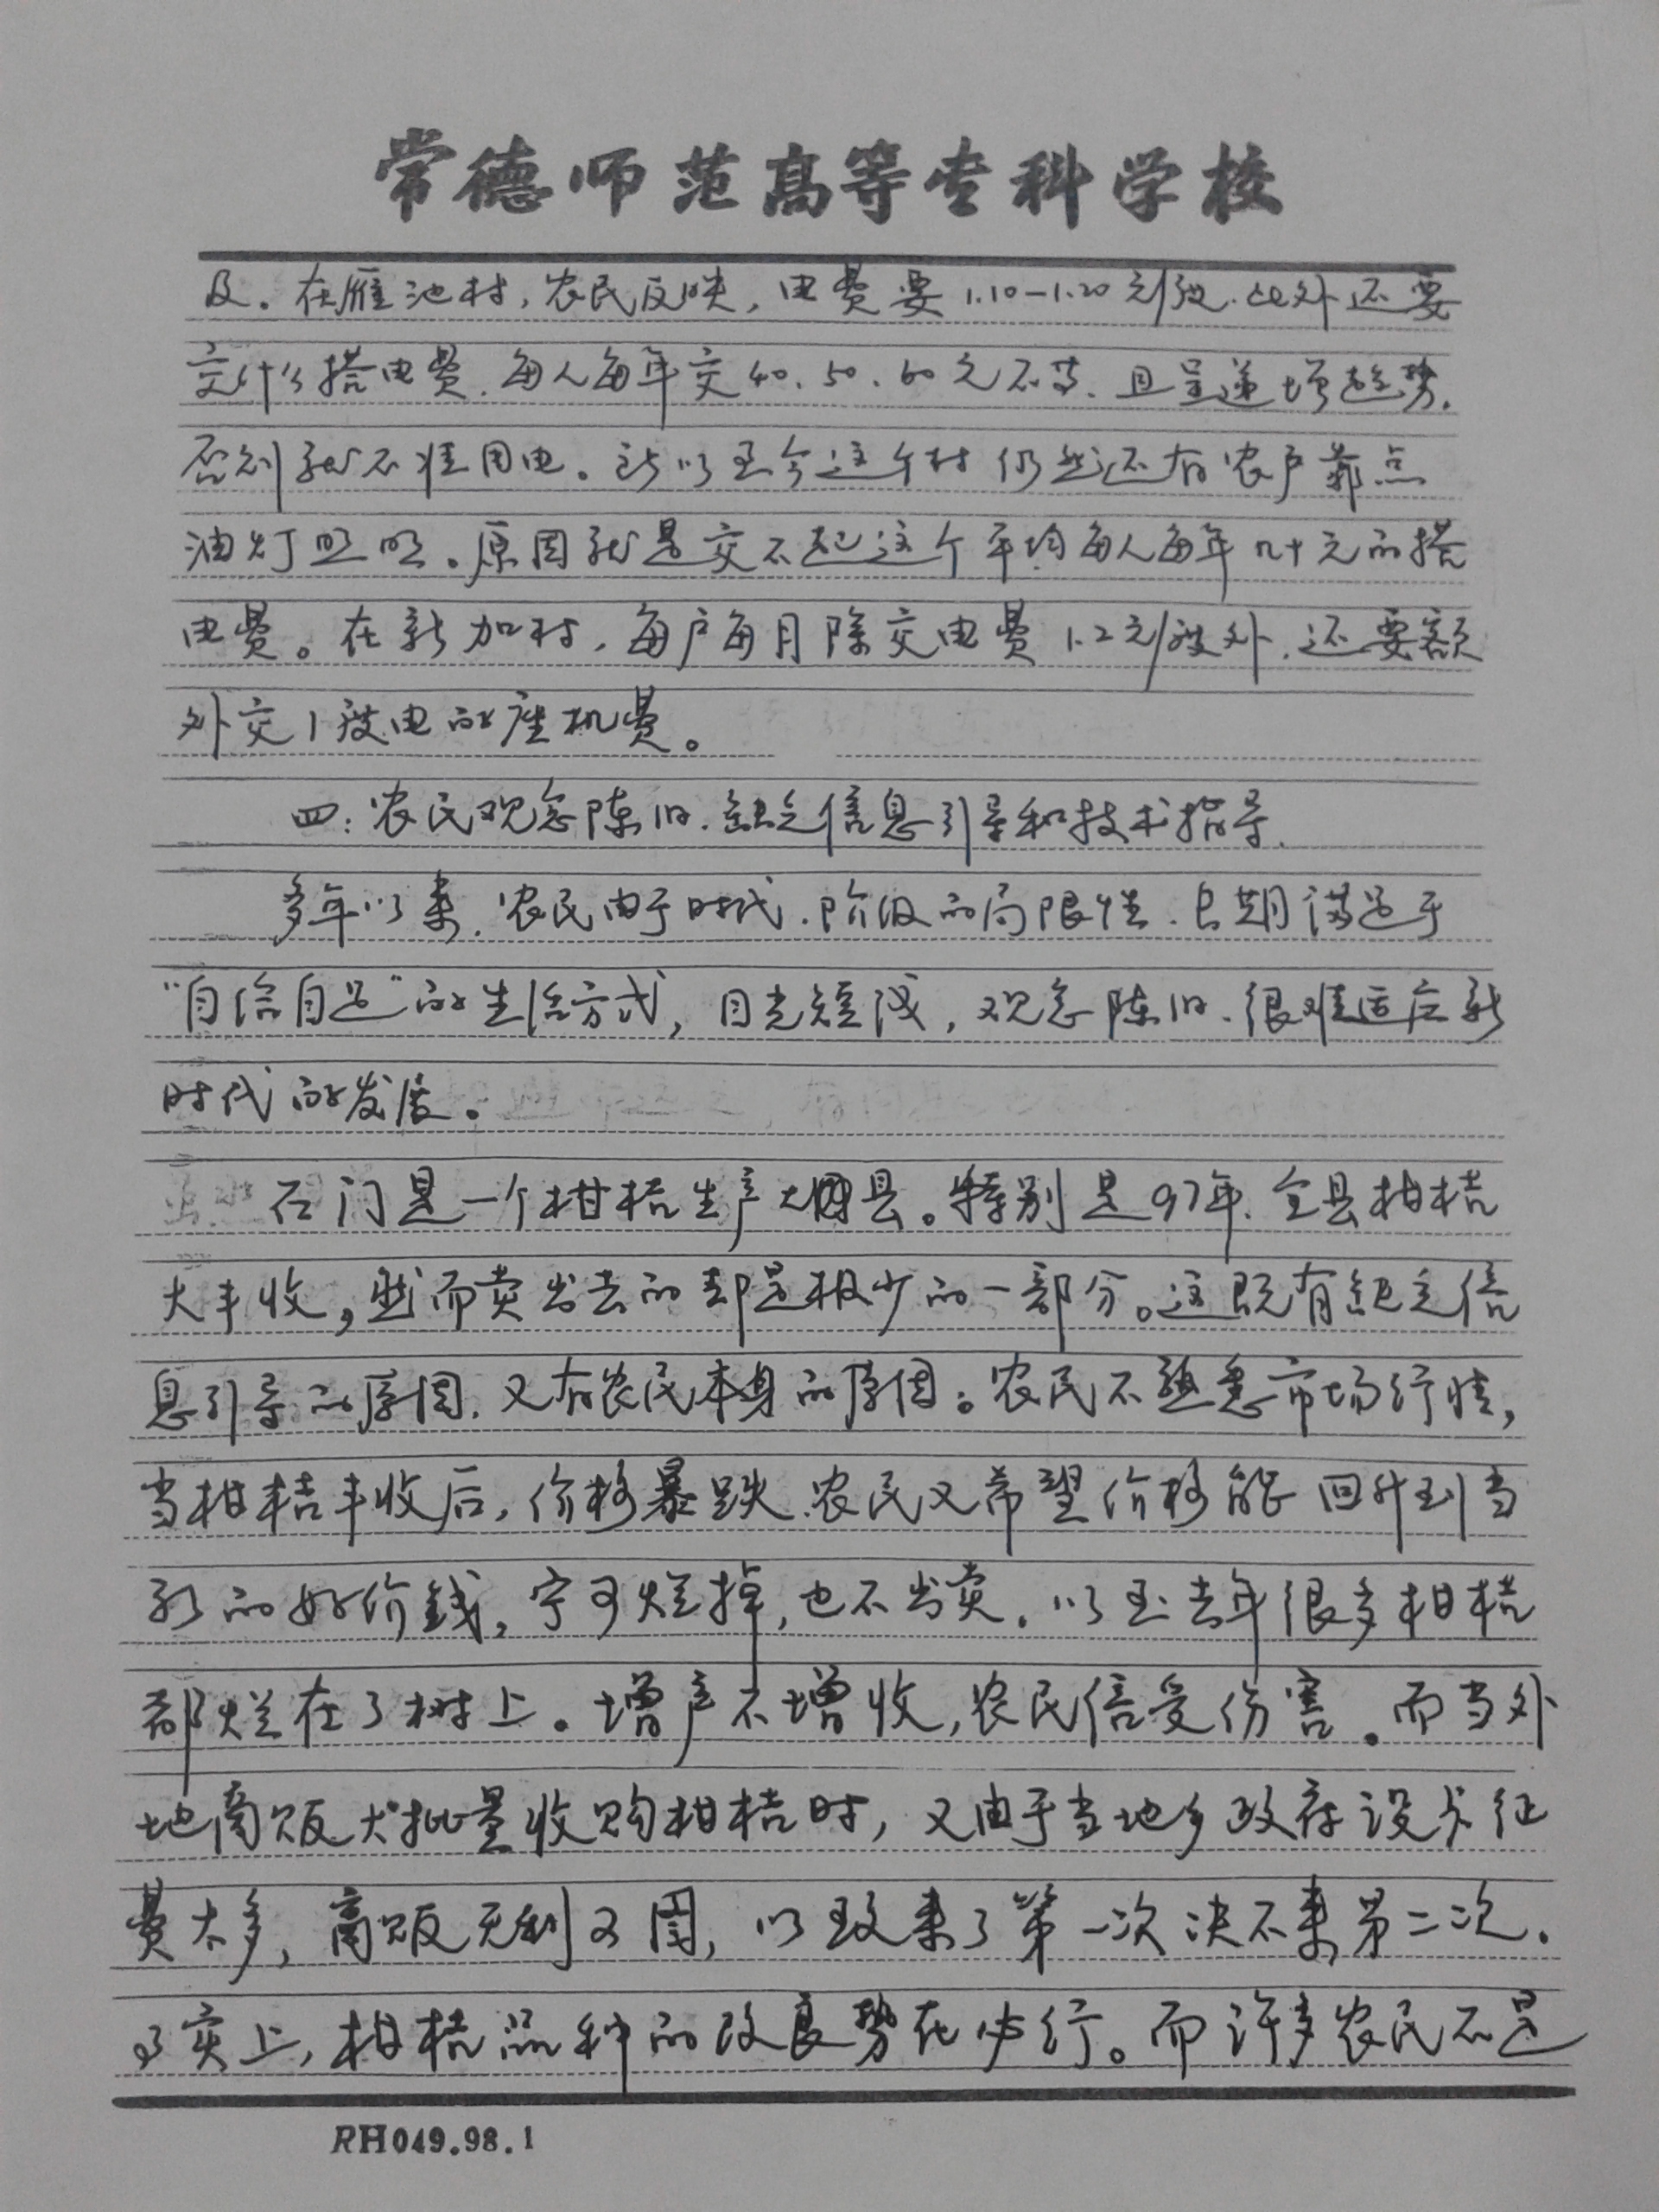 常德师范高等专科学校
及。在雁池村，农民反映，电费要1.10-1.20元/度.此外还要
交什么搭电费.每人每年交40、50、60元不等.且呈递增趋势.
否则就不准用电。所以至今这个村仍然还有农户靠点
油灯照明。原因就是交不起这个平均每人每年几十元的搭
电费。在新加村，每户每月除交电费1.2元/度外.还要额
外交1度电的座机费。
四：农民观念陈旧.缺乏信息引导和技术指导.
多年以来.农民由于时代.阶级的局限性.长期满足于
“自给自足”的生活方式，目光短浅，观念陈旧.很难适应新
时代的发展。
石门是一个柑桔生产大县。特别是97年.全县柑桔
大丰收，然而卖出去的却是极少的一部分。这既有缺乏信
息引导的原因.又有农民本身的原因。农民不熟悉市场行情，
当柑桔丰收后，价格暴跌.农民又希望价格能回升到当
初的好价钱，宁可烂掉，也不出卖.以至去年很多柑桔
都烂在了树上。增产不增收，农民倍受伤害。而当外
地商贩大批量收购柑桔时，又由于当地乡政府设卡征
费太多，商贩无利可图，以致来了第一次决不来第二次.
事实上，柑桔品种的改良势在必行。而许多农民不是
RH049.98.1